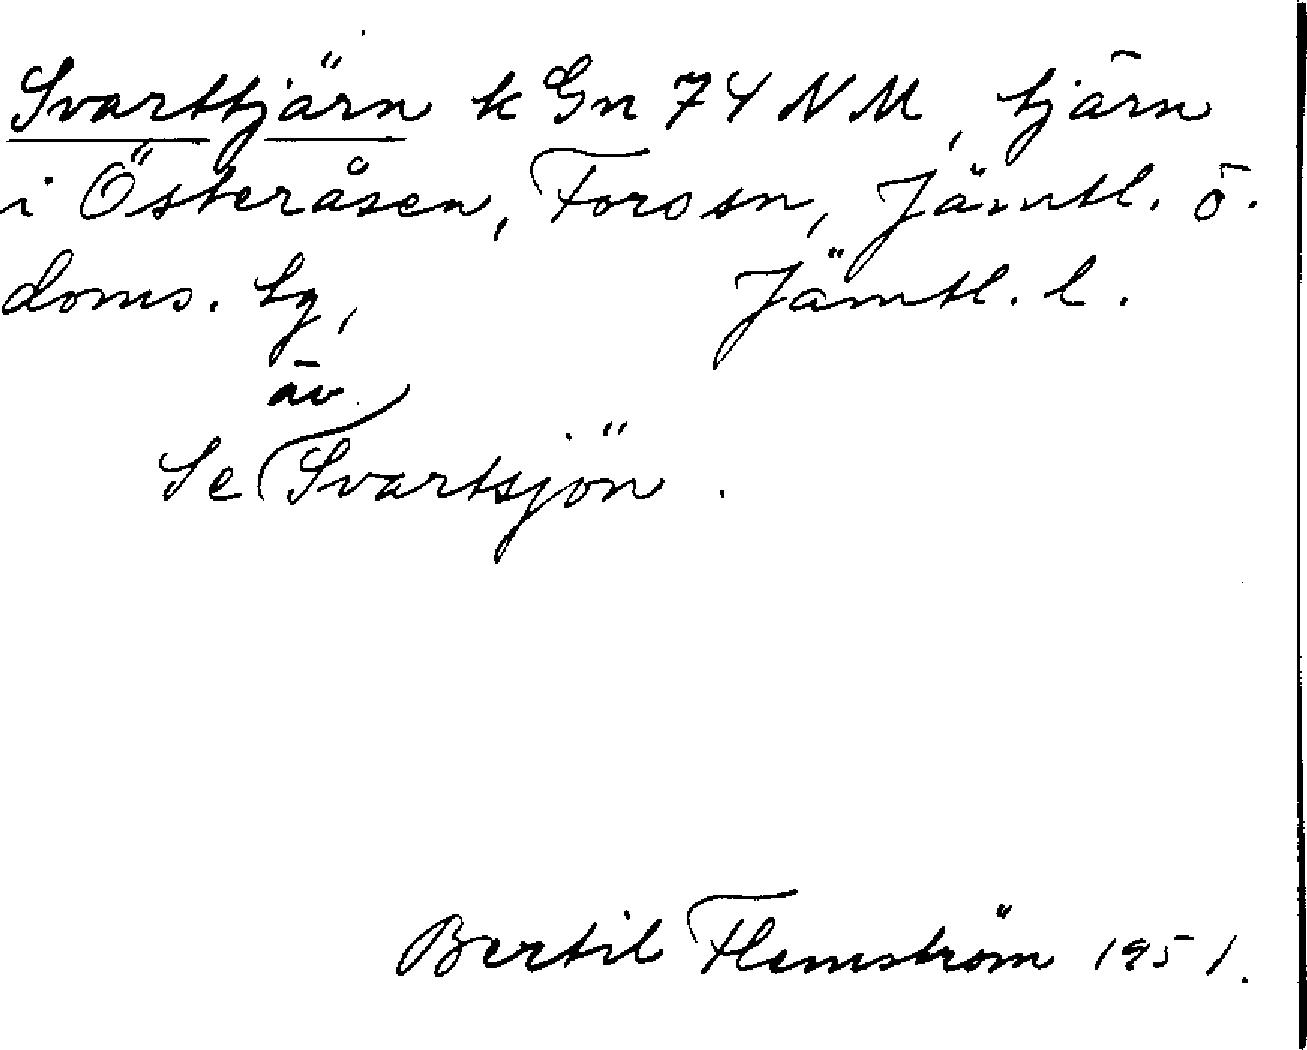 Svarttjärn k Gn 74 NM, tjärn
i Österåsen, Forss sn, Jämtl. ö.
doms. tg, Jämtl. l.
äv
Se Svartsjön.
Bertil Flemström 1951.